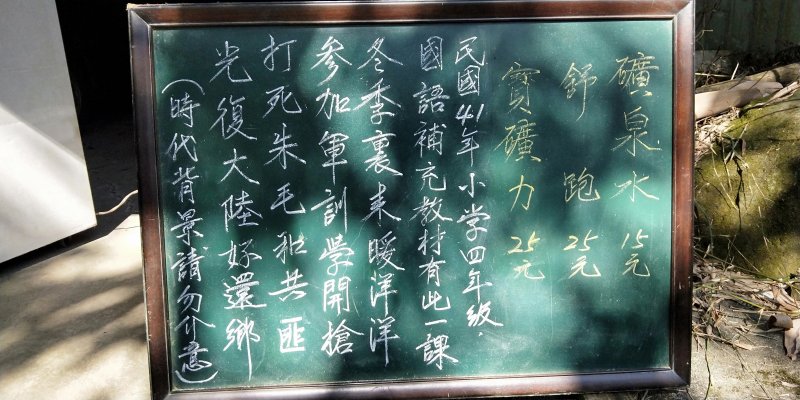 礦泉水 15元
舒跑 25元
寶礦力 25元
民國41年小学四年級.
國語補充教材有此一課
冬季裏来暖洋洋
参加軍訓學開槍
打死朱毛和共匪
光復大陸好還鄉
(時代背景請勿介意)